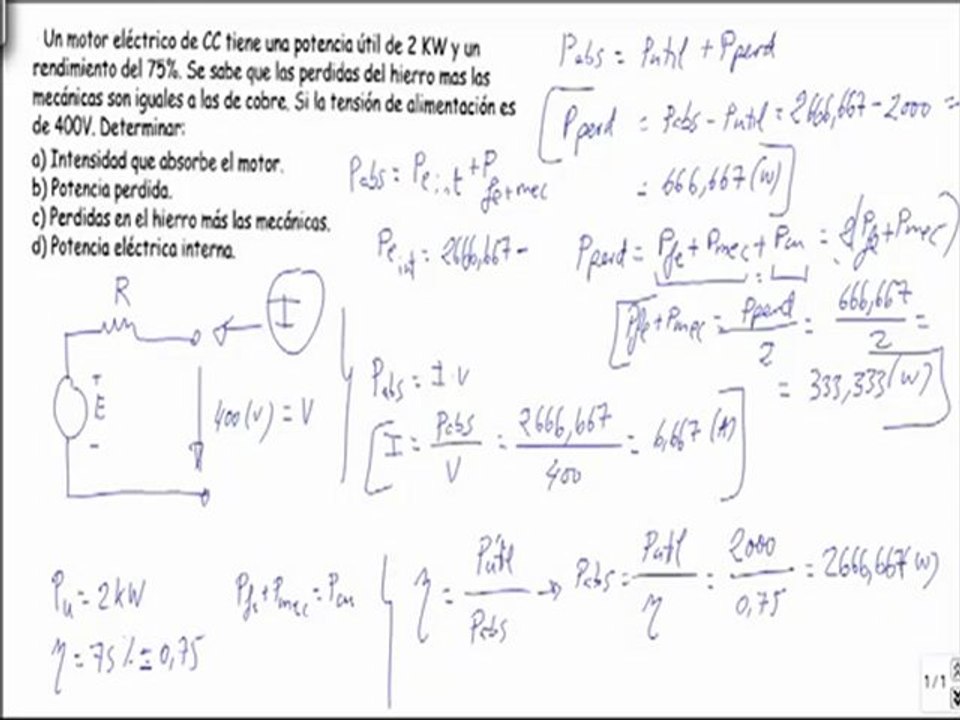 Un motor eléctrico de CC tiene una potencia útil de 2 KW y un
rendimiento del 75%. Se sabe que las perdidas del hierro mas las
mecánicas son iguales a las de cobre. Si la tensión de alimentación es
de 400V. Determinar:
a) Intensidad que absorbe el motor.
b) Potencia perdida.
c) Perdidas en el hierro más las mecánicas.
d) Potencia eléctrica interna.
Pabs = Putil + Pperd
Pperd = Pabs - Putil = 2666,667 - 2000 =
= 666,667 (W)
Pabs = Pe int + P fe+mec
Pe int = 2666,667 -
Pperd = Pfe + Pmec + Pcu = 2(Pfe + Pmec)
Pfe + Pmec = Pperd / 2 = 666,667 / 2 =
= 333,333 (W)
R
I
+
E
-
400 (V) = V
Pabs = I · V
I = Pabs / V = 2666,667 / 400 = 6,667 (A)
Pu = 2 kW
η = 75 % = 0,75
Pfe + Pmec = Pcu
η = Pútil / Pabs → Pabs = Putil / η = 2000 / 0,75 = 2666,667 (W)
1/1